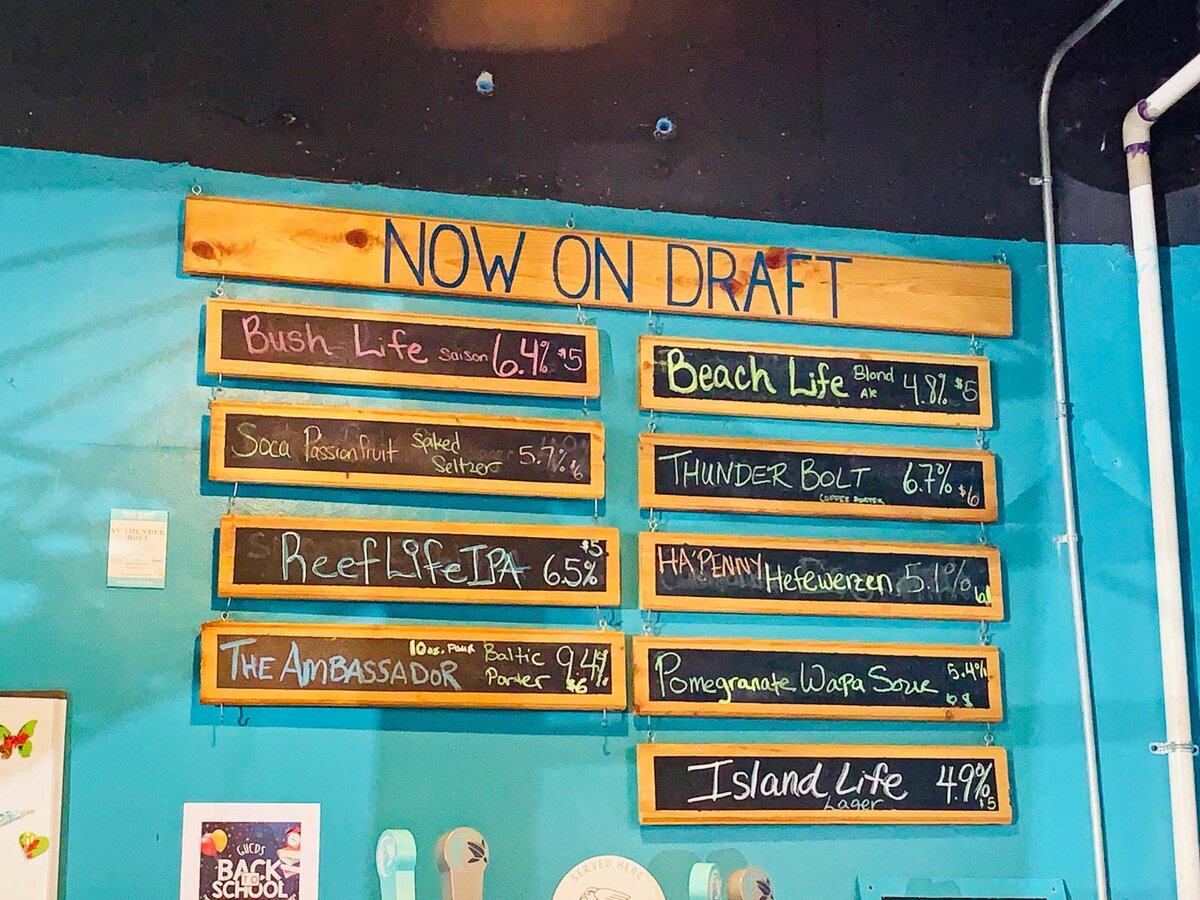 NOW ON DRAFT
Bush Life Saison 6.4% $5
Soca Passionfruit Spiked
Seltzer 5.7% $6
Reef Life IPA 6.5% $5
THE AMBASSADOR 10oz. Pour Baltic
Porter 9.4% $6
Beach Life Blond
Ale 4.8% $5
THUNDER BOLT 6.7% $6
COFFEE PORTER
HA'PENNY Hefewerzen 5.1%
Pomegranate Wapa Sour 5.4%
Island Life 4.9% $5
Lager
SV THUNDER
BOLT
GHCDS
BACK
TO
SCHOOL
SERVED HERE